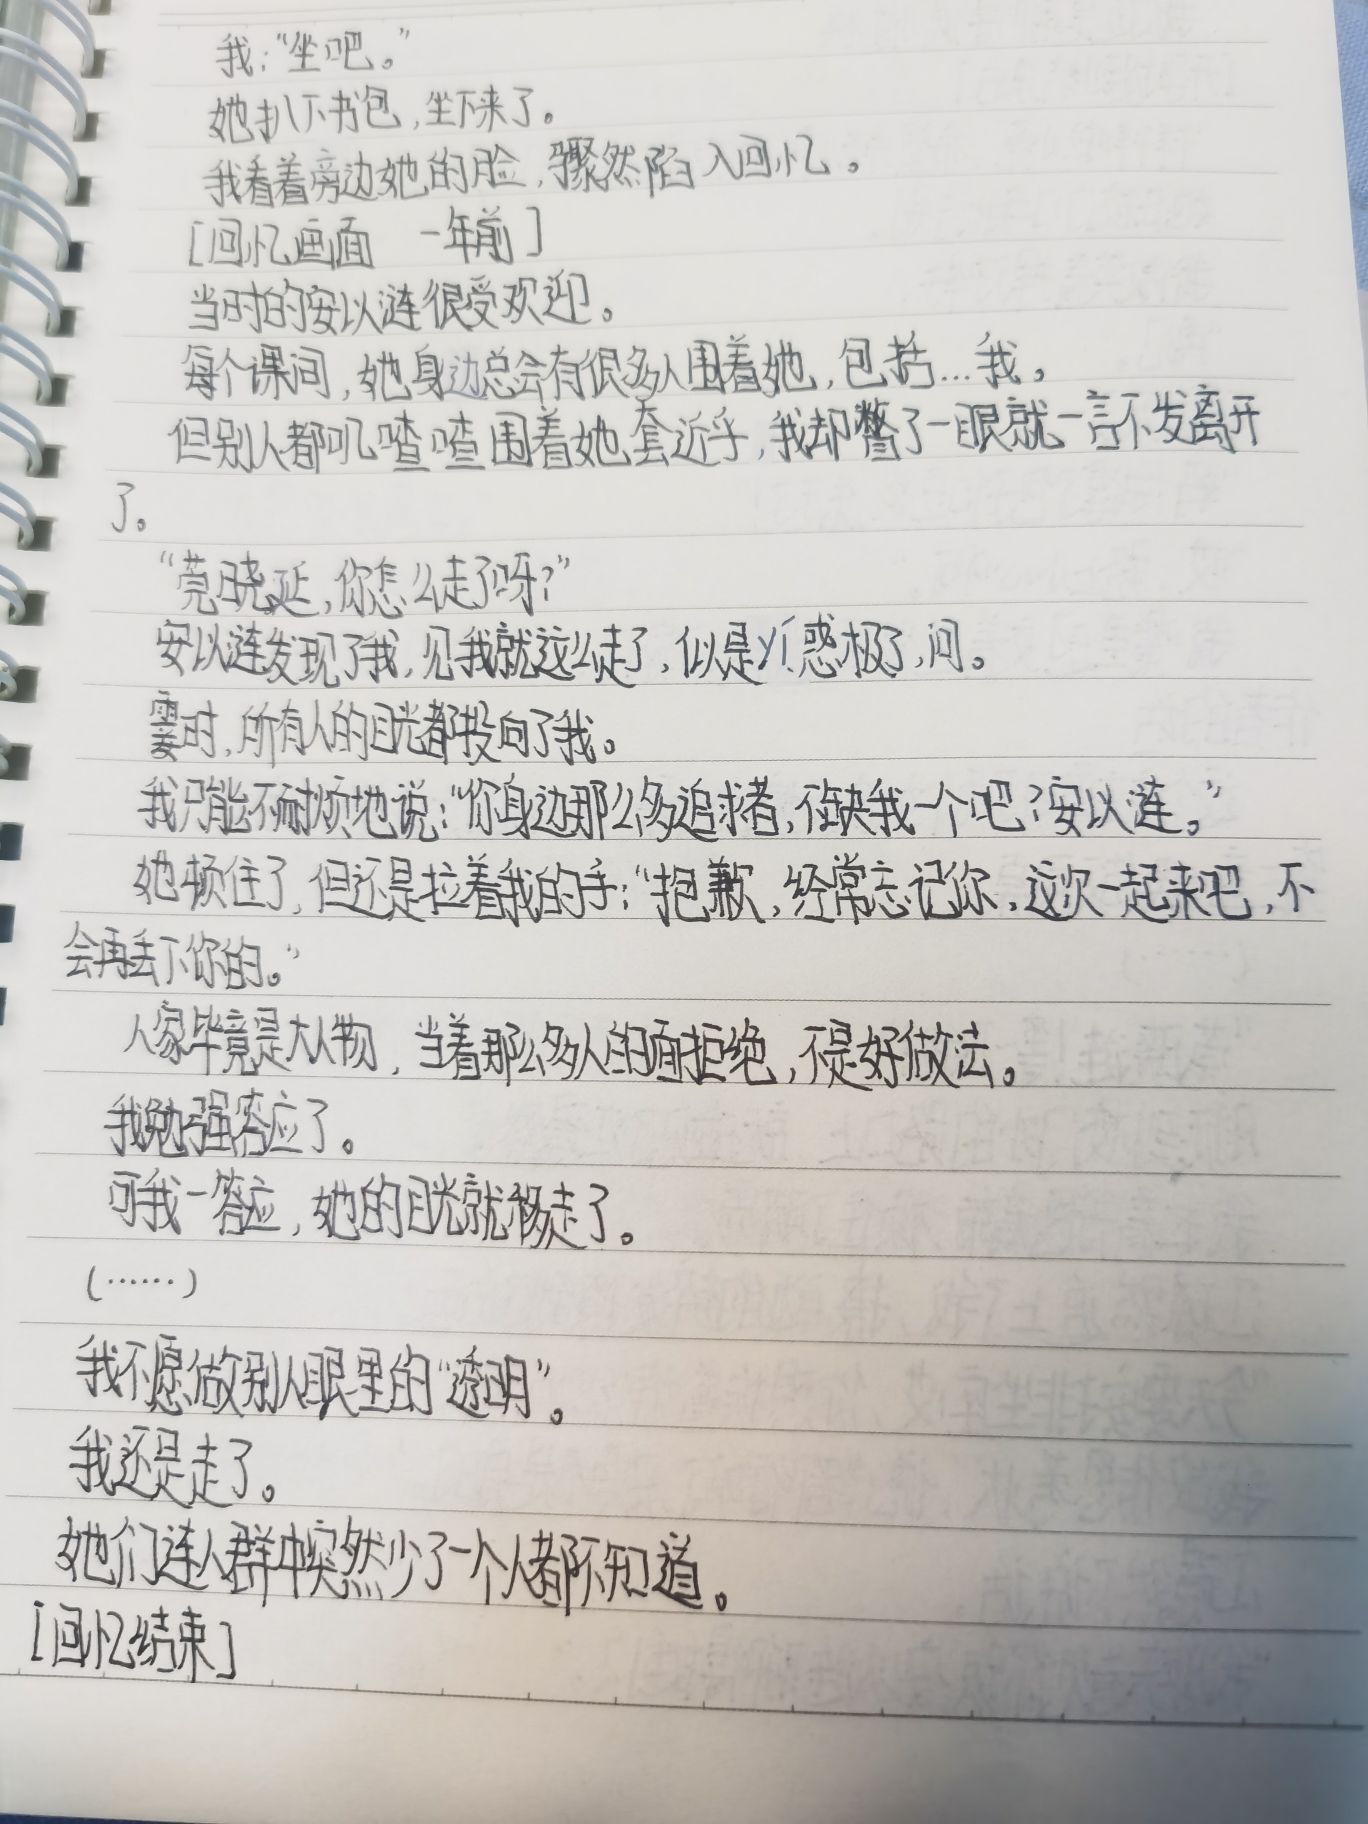 我：“坐吧。”
她扒下书包，坐下来了。
我看着旁边她的脸，骤然陷入回忆。
[回忆画面 一年前]
当时的安以涟很受欢迎。
每个课间，她身边总会有很多人围着她，包括…我。
但别人都叽喳喳围着她套近乎，我却瞥了一眼就一言不发离开
了。
“莞晓延，你怎么走了呀？”
安以涟发现了我，见我就这么走了，似是惑极了，问。
霎时，所有人的目光都投向了我。
我只能不耐烦地说：“你身边那么多追求者，不缺我一个吧？安以涟。”
她顿住了，但还是拉着我的手：“抱歉，经常忘记你，这次一起来吧，不
会再丢下你的。”
人家毕竟是大人物，当着那么多人的面拒绝，不是好做法。
我勉强答应了。
可我一答应，她的目光就移走了。
（……）
我不愿做别人眼里的“透明”。
我还是走了。
她们连人群中突然少了一个人都不知道。
[回忆结束]